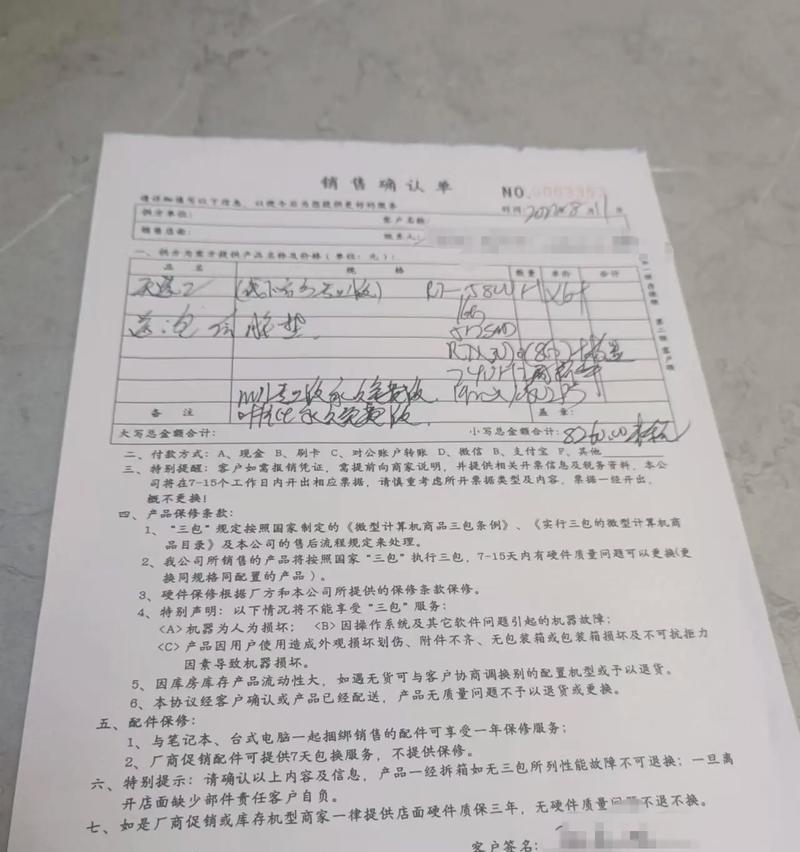 销售确认单
NO.
请详细填写以下信息，以便今后为您提供更好的服务
时间: 2022年8月11日
供方单位: 客户名称:
销售店面: 联系人:
一、供方为需方提供产品名称及价格(单位: 元):
品名 规格 数量 单价 合计
R7-5800H
16G
备注 盖章:
大写总金额合计: 小写总金额合计: 8260.00
二、付款方式: A、现金 B、刷卡 C、对公账户转账 D、微信 B、支付宝 F、其他
三、特别提醒: 客户如需报销凭证, 需提前向商家说明, 并提供相关开票信息及税务资料, 本公
司将在7-15个工作日内开出相应票据, 请慎重考虑所开票据类型及内容, 票据一经开出,
概不更换!
四、产品保修条款:
1、“三包”规定按照国家制定的《微型计算机商品三包条例》、《实行三包的微型计算机商
品目录》及本公司的售后流程规定来处理。
2、我公司所销售的产品将按照国家“三包”执行三包, 7-15天内有硬件质量问题可以更换(更
换同规格同配置的产品)。
3、硬件保修根据厂方和本公司所提供的保修条款保修。
4、特别声明: 以下情况将不能享受“三包”服务:
<A>机器为人为损坏; <B>因操作系统及其它软件问题引起的机器故障;
<C>产品因用户使用造成外观损坏划伤、附件不齐、无包装箱或包装箱损坏及不可抗拒力
因素导致机器损坏。
5、因库房库存产品流动性大, 如遇无货可与客户协商调换别的配置机型或予以退货。
6、本协议经客户确认或产品已经配送, 产品无质量问题不予以退货或更换。
五、配件保修:
1、与笔记本、台式电脑一起捆绑销售的配件可享受一年保修服务;
2、厂商促销配件可提供7天包换服务, 不提供保修。
六、特别提示: 请确认以上内容及信息, 产品一经拆箱如无三包所列性能故障不可退换; 一旦离
开店面缺少部件责任客户自负。
七、如是厂商促销或库存机型商家一律提供店面硬件质保三年, 无硬件质量问题不退不换。
客户签名: